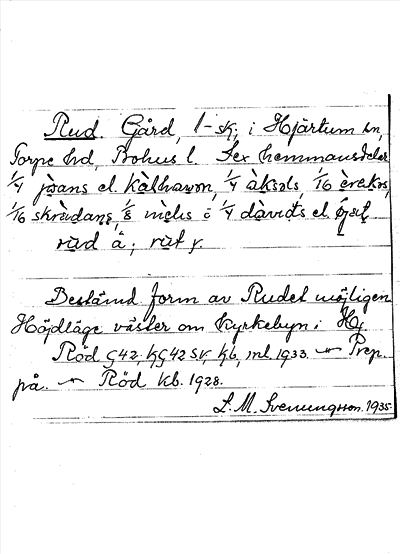 Rud. Gård, 1-sk; i Hjärtum sn,
Torpe hd, Bohus l. Sex hemmansdelar
1/4 jɵans el. 1/4 àksəls, 1/16 èrekəs,
1/16 skrædaɲs 1/8 nìels o 1/4 dàvɩds el.
rùd å; rùt y.
Bestämd form av Rudet möjligen
Höjdläge väster om Kyrkebyn i Hj.
Röd G42, KG42 SV, Kb, ml. 1933. ~ Prep.
på. ~ Röd Kb. 1928.
L. M. Svenungsson. 1935.